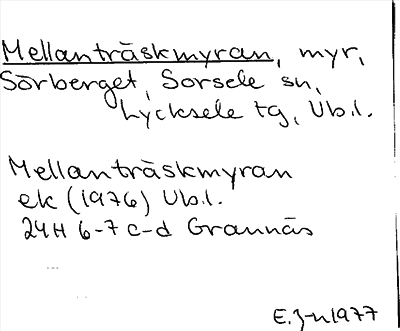 Mellanträskmyran, myr,
Sörberget, Sorsele sn,
Lycksele tg, Vb.l.
Mellanträskmyran
ek (1976) Vb.l.
24H 6-7 c-d Grannäs
E.J-n 1977